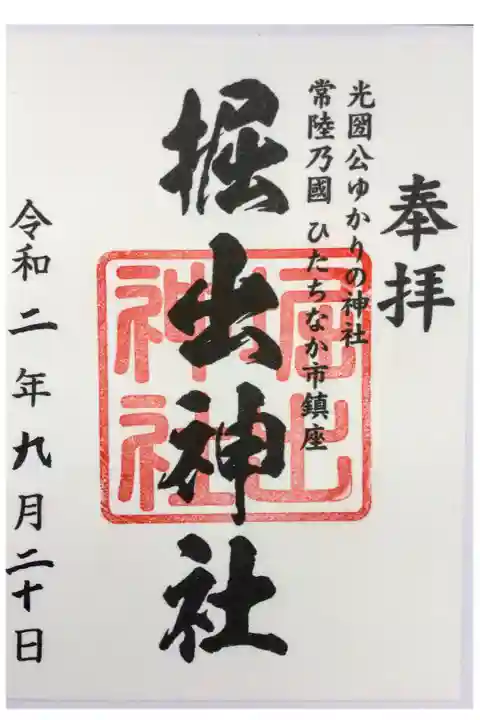 奉拝
光圀公ゆかりの神社
常陸乃國 ひたちなか市鎮座
掘出神社
堀出
神社
令和二年九月二十日